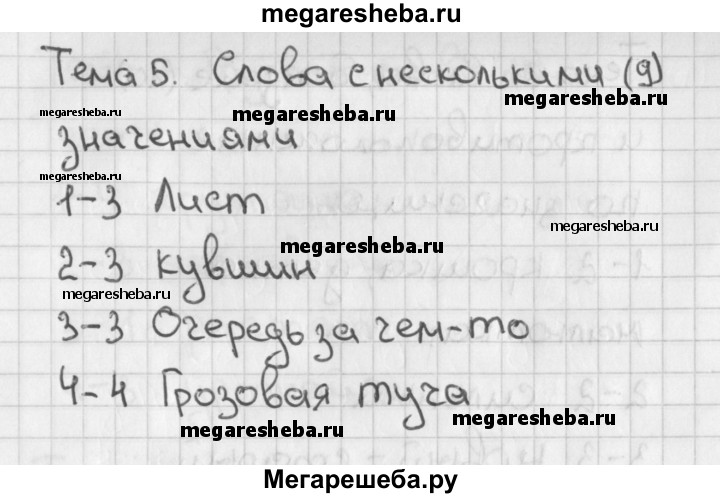 megaresheba.ru
Тема 5. Слова с несколькими (9)
megaresheba.ru
megaresheba.ru
megaresheba.ru
значениями
megaresheba.ru
1-3 Лист
megaresheba.ru
megaresheba.ru
2-3 кувшин
megaresheba.ru
3-3 Очередь за чем-то
4-4 Грозовая туча
megaresheba.ru
megaresheba.ru
Мегарешеба.ру